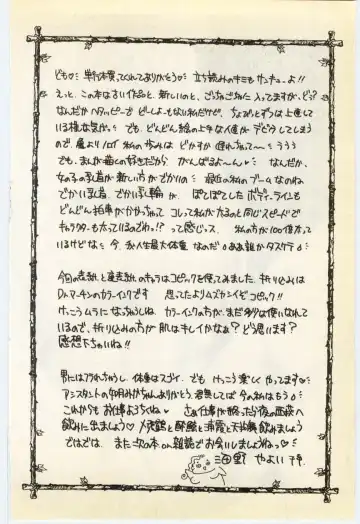 ども♡単行本買ってくれてありがとう♡立ち読みのキミもサンキューよ!!
えっと、この本は古い作品と、新しいのと、ごちゃごちゃに入ってますが、どう?
なんだかヘタッピーでどーしよーもない私だけど、ちょびっとずつは上達して
いる様な気が…。でも、どんどん絵の上手な人達がデビューしてしまう
ので、亀よりノロイ私の歩みはどやすか遅れちゃって〜ううう
でも、まんが描くの好きだからがんばるよ〜ん♡なんだか、
女の子の乳首が新しい方がでかいの。最近の私のブームなのね
でかい乳首、でかい乳輪が。ぽてぽてしたボディーラインも
どんどん拍車がかかっちゃって、コレって私が太るのと同じスピードで
キャラクターも太っているのでわ!?って感じっス。私の方が100倍太って
いるけどな。今、私人生最大体重なのだ。ああ誰かタスケテ。
今回の表紙と裏表紙のキャラはコピックを使ってみました。折り込みは
Dr.マーチンのカラーインクです。思ってたよりムズカシイぞコピック!!
けっこうムラになっちゃうしね。カラーインクの方が、まだ多少は使いなれて
いるので、折り込みの方が肌はキレイかなぁ?どう思います?
感想下ちゃいね!!
男にはフラれちゃうし、体重はスゴイ、でも、けっこう楽しくやってます♡
アシスタントの卯月みかちゃん、ありがとう。君無しでは今の私はもう。
これからもお仕事よろちくね♡さぁ仕事が終ったら夜の西荻へ
飲みに出ましょう♡
ではでは、また次の本or雑誌でお会いしましょうねっ♡
海野やよい